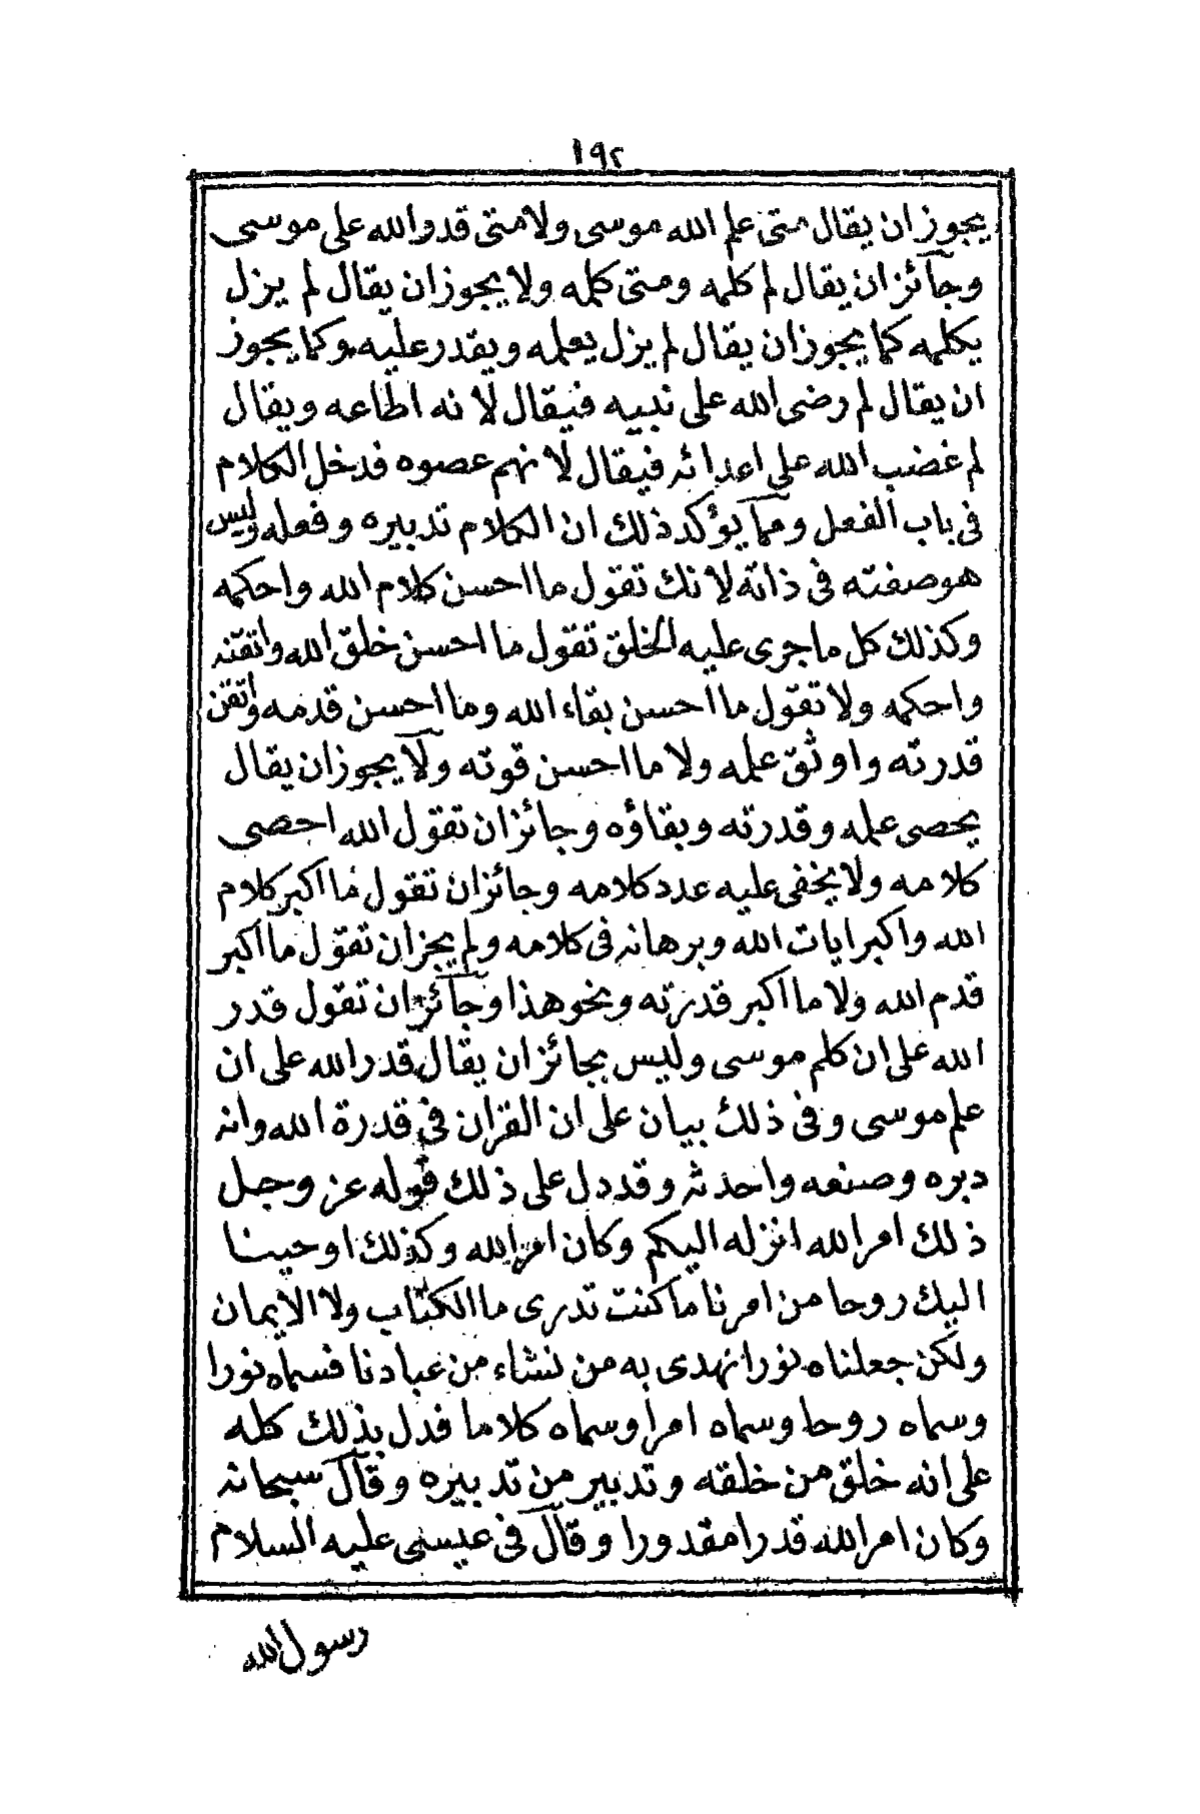 ١٩٢
يجوز ان يقال متى علم الله موسى ولا متى قدر الله على موسى
وجآئز ان يقال لم كلمه ومتى كلمه ولا يجوز ان يقال لم يزل
يكلمه كما يجوز ان يقال لم يزل يعلمه ويقدر عليه وكما يجوز
ان يقال لم رضى الله على نبيه فيقال لانه اطاعه ويقال
لم غضب الله على اعدائه فيقال لانهم عصوه فدخل الكلام
فى باب الفعل ومما يؤكد ذلك ان الكلام تدبيره وفعله وليس
هو صفته فى ذاته لانك تقول ما احسن كلام الله واحكمه
وكذلك كل ما جرى عليه الخلق تقول ما احسن خلق الله واتقنه
واحكمه ولا تقول ما احسن بقاء الله وما احسن قدمه واتقن
قدرته واوثق علمه ولا ما احسن قوته ولآ يجوز ان يقال
يحصى علمه وقدرته وبقاؤه وجائز ان تقول الله احصى
كلامه ولا يخفى عليه عدد كلامه وجائز ان تقول ما اكبر كلام
الله واكبر ايات الله وبرهانه فى كلامه ولم يجز ان تقول ما اكبر
قدم الله ولا ما اكبر قدرته ونحو هذا وجآئز ان تقول قدر
الله على ان كلم موسى وليس بجائز ان يقال قدر الله على ان
علم موسى وفى ذلك بيان على ان القران فى قدرة الله وانه
دبره وصنعه واحدثه وقد دل على ذلك قوله عز وجل
ذلك امر الله انزله اليكم وكان امر الله وكذلك اوحينا
اليك روحا من امرنا ما كنت تدرى ما الكتاب ولا الايمان
ولكن جعلناه نورا نهدى به من نشاء من عبادنا فسماه نورا
وسماه روحا وسماه امرا وسماه كلاما فدل بذلك كله
على انه خلق من خلقه وتدبير من تدبيره وقال سبحانه
وكان امر الله قدرا مقدورا وقال فى عيسى عليه السلام
رسول الله